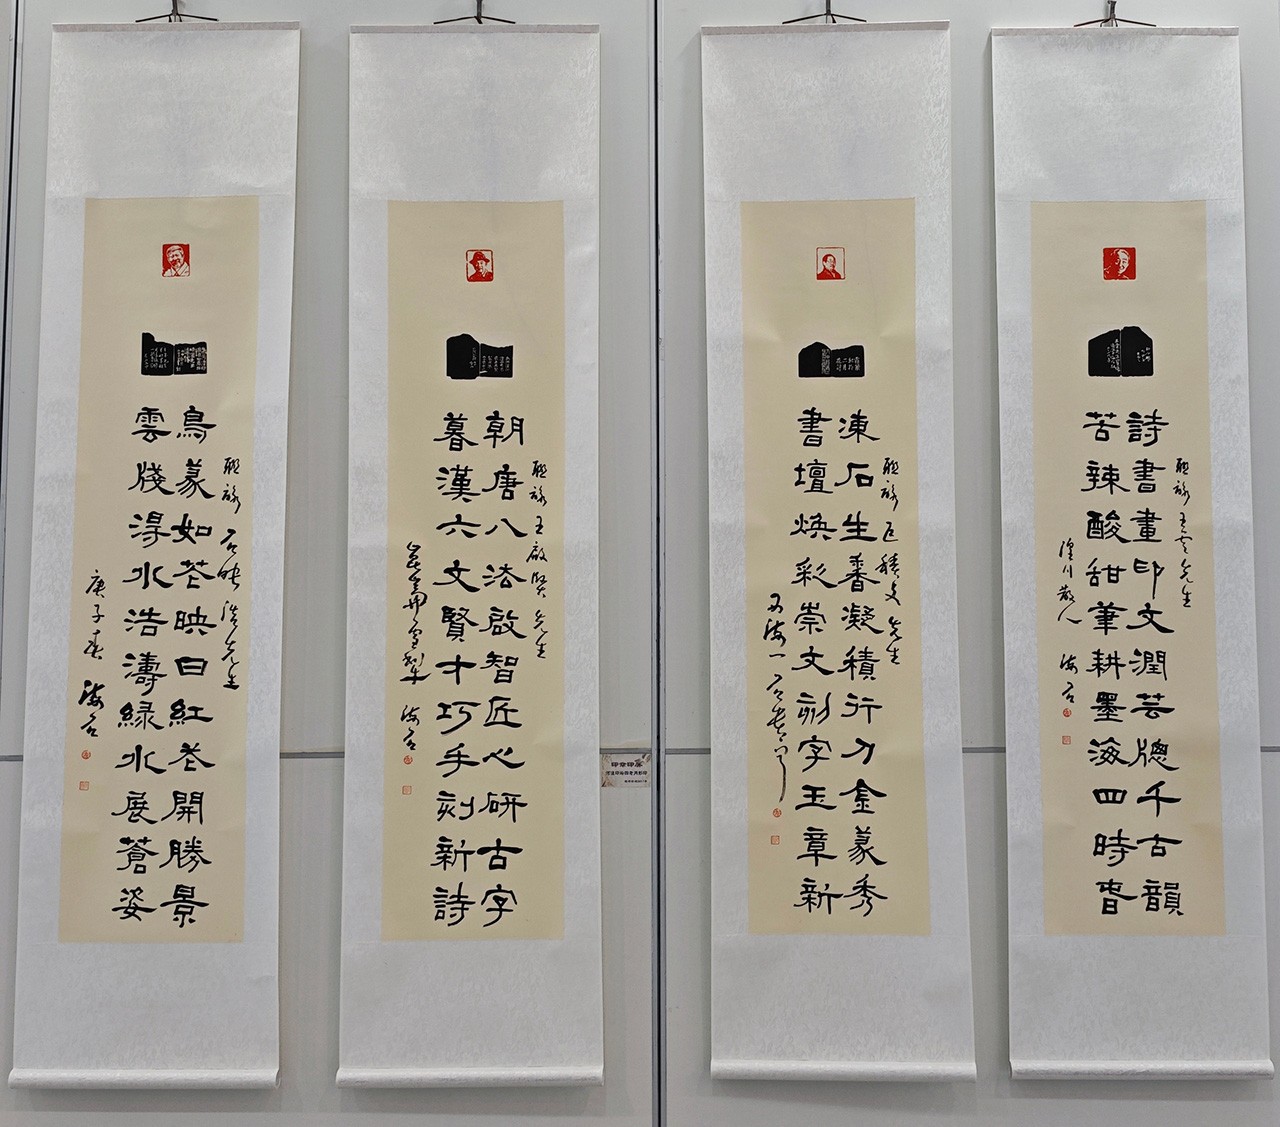 聯詠 王雲先生
詩書畫印文潤芸牕千古韻
苦辣酸甜筆耕墨海四時春
湟川散人 海石
聯詠 匡積文先生
凍石生香凝積行刀金篆秀
書壇煥彩崇文刻字玉章新
聯詠 王啟賢先生
朝唐八法啟智匠心研古字
暮漢六文賢才巧手刻新詩
海石
聯詠 石映浩先生
鳥篆如花映日紅花開勝景
雲牋得水浩濤緑水展蒼姿
庚子春 海石